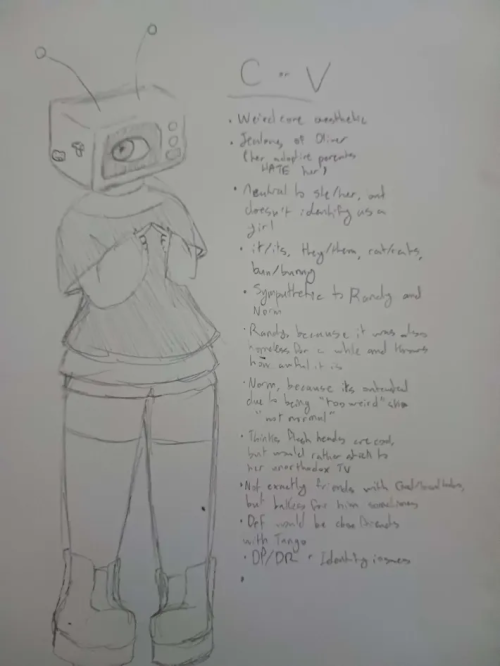 C or V
• Weirdcore aesthetic
• Jealous of Oliver
(her adoptive parents
HATE her)
• Neutral to she/her, but
doesn't identify as a
girl
• it/its, they/them, cat/cats,
bun/bunny
• Sympathetic to Randy and
Norm
• Randy, because it was also
homeless for a while and knows
how awful it is
• Norm, because its outcasted
due to being "too weird" also
"not normal"
• Thinks heads are cool,
but would rather stick to
her unorthodox TV
• Not exactly friends with
but bakes for him sometimes
• Def would be close friends
with Tango
• DP/DR + Identity issues
•